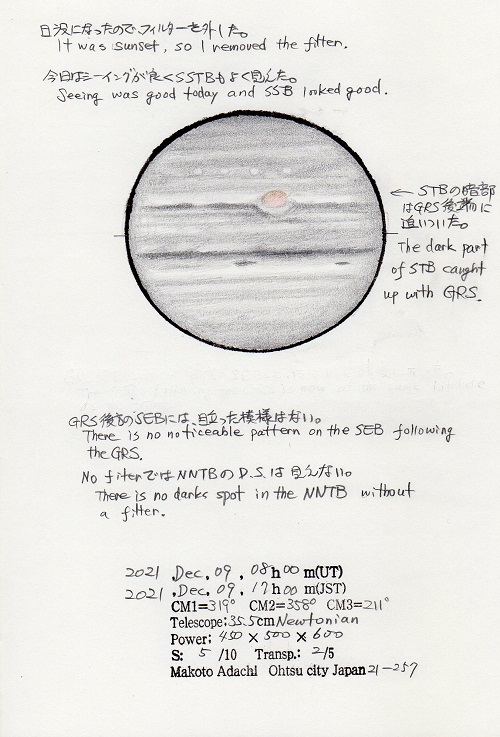 日没になったのでフィルターを外した。
It was sunset, so I removed the filter.
今日はシーイングが良くSSTBもよく見えた。
Seeing was good today and SSB looked good.
← STBの暗部
はGRS後端に
追いついた。
The dark part
of STB caught
up with GRS.
GRS後方のSEBには、目立った模様はない。
There is no noticeable pattern on the SEB following
the GRS.
No fiterではNNTBのD.S.は見えない。
There is no darks spot in the NNTB without
a filter.
2021 .Dec. 09 , 08h00 m(UT)
2021 .Dec. 09 , 17h00 m(JST)
CM1=319° CM2=358° CM3=211°
Telescope:35.5cm Newtonian
Power: 450 × 500 × 600
S: 5 /10 Transp.: 2/5
Makoto Adachi Ohtsu city Japan 21-257